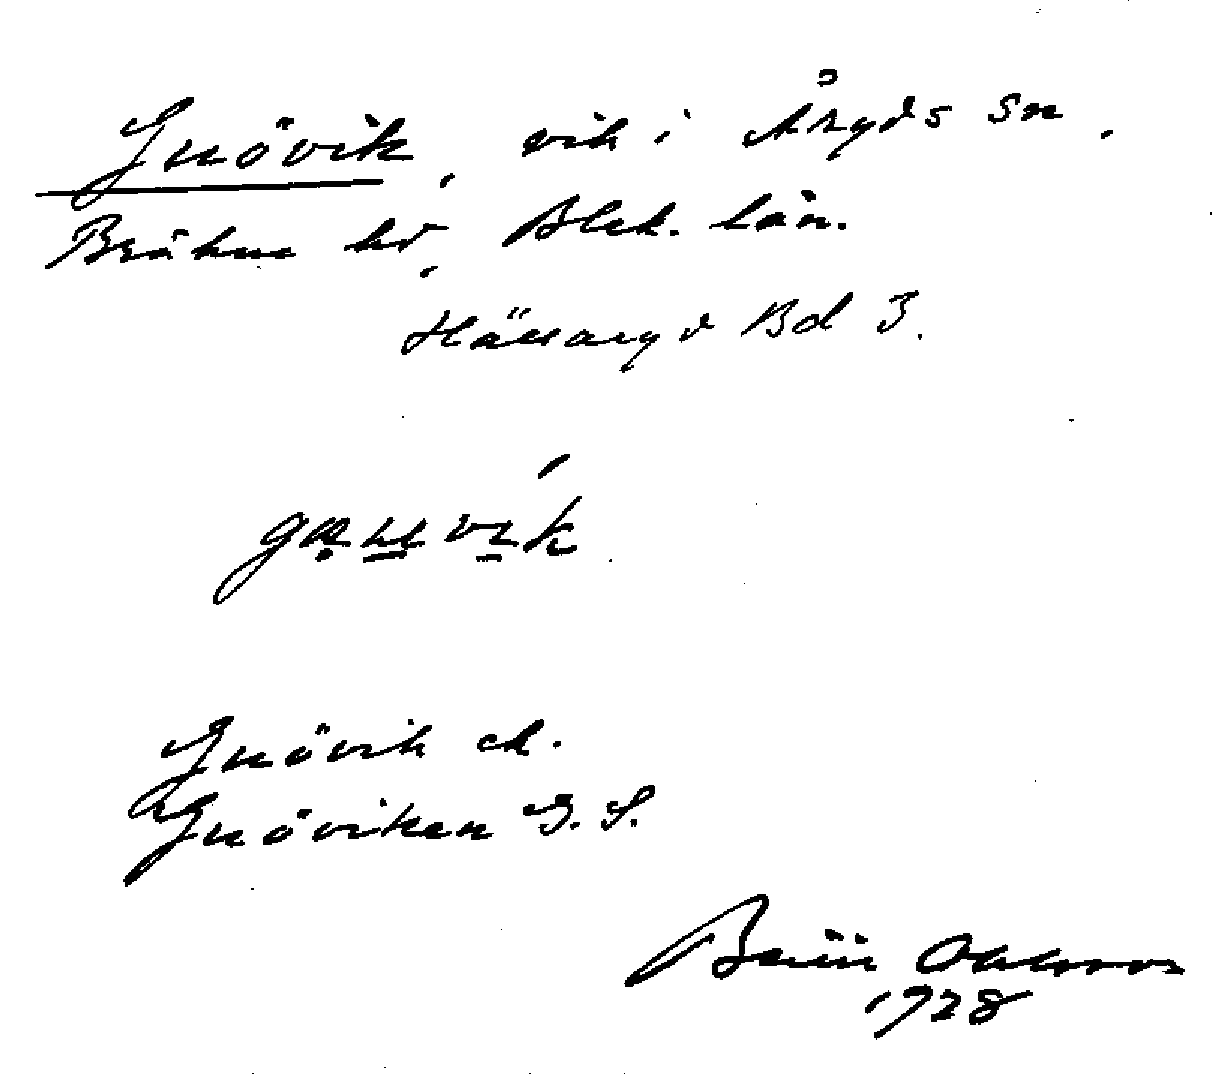 Gnövik, vik i Åryds sn,
Bräkne hd, Blek. län.
Hällaryd Bd 3.
Gnövik ek.
Gnöviken G. S.
Ohlsson
1928